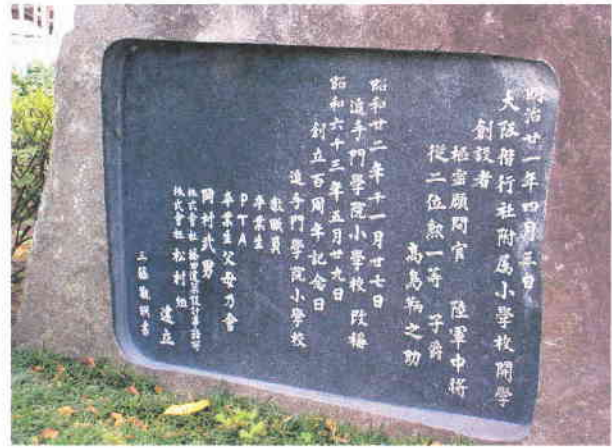 明治廿一年四月三日
大阪偕行社附属小學校開學
創設者
樞密顧問官 陸軍中将
從二位勲一等 子爵
高島鞆之助
昭和廿二年十一月廿七日
追手門學院小學校 改稱
昭和六十三年五月廿九日
創立百周年記念日
追手門學院小學校
教職員
卒業生
PTA
卒業生父母乃會
岡村武男
株式會社
株式會社 松村組
建立
書